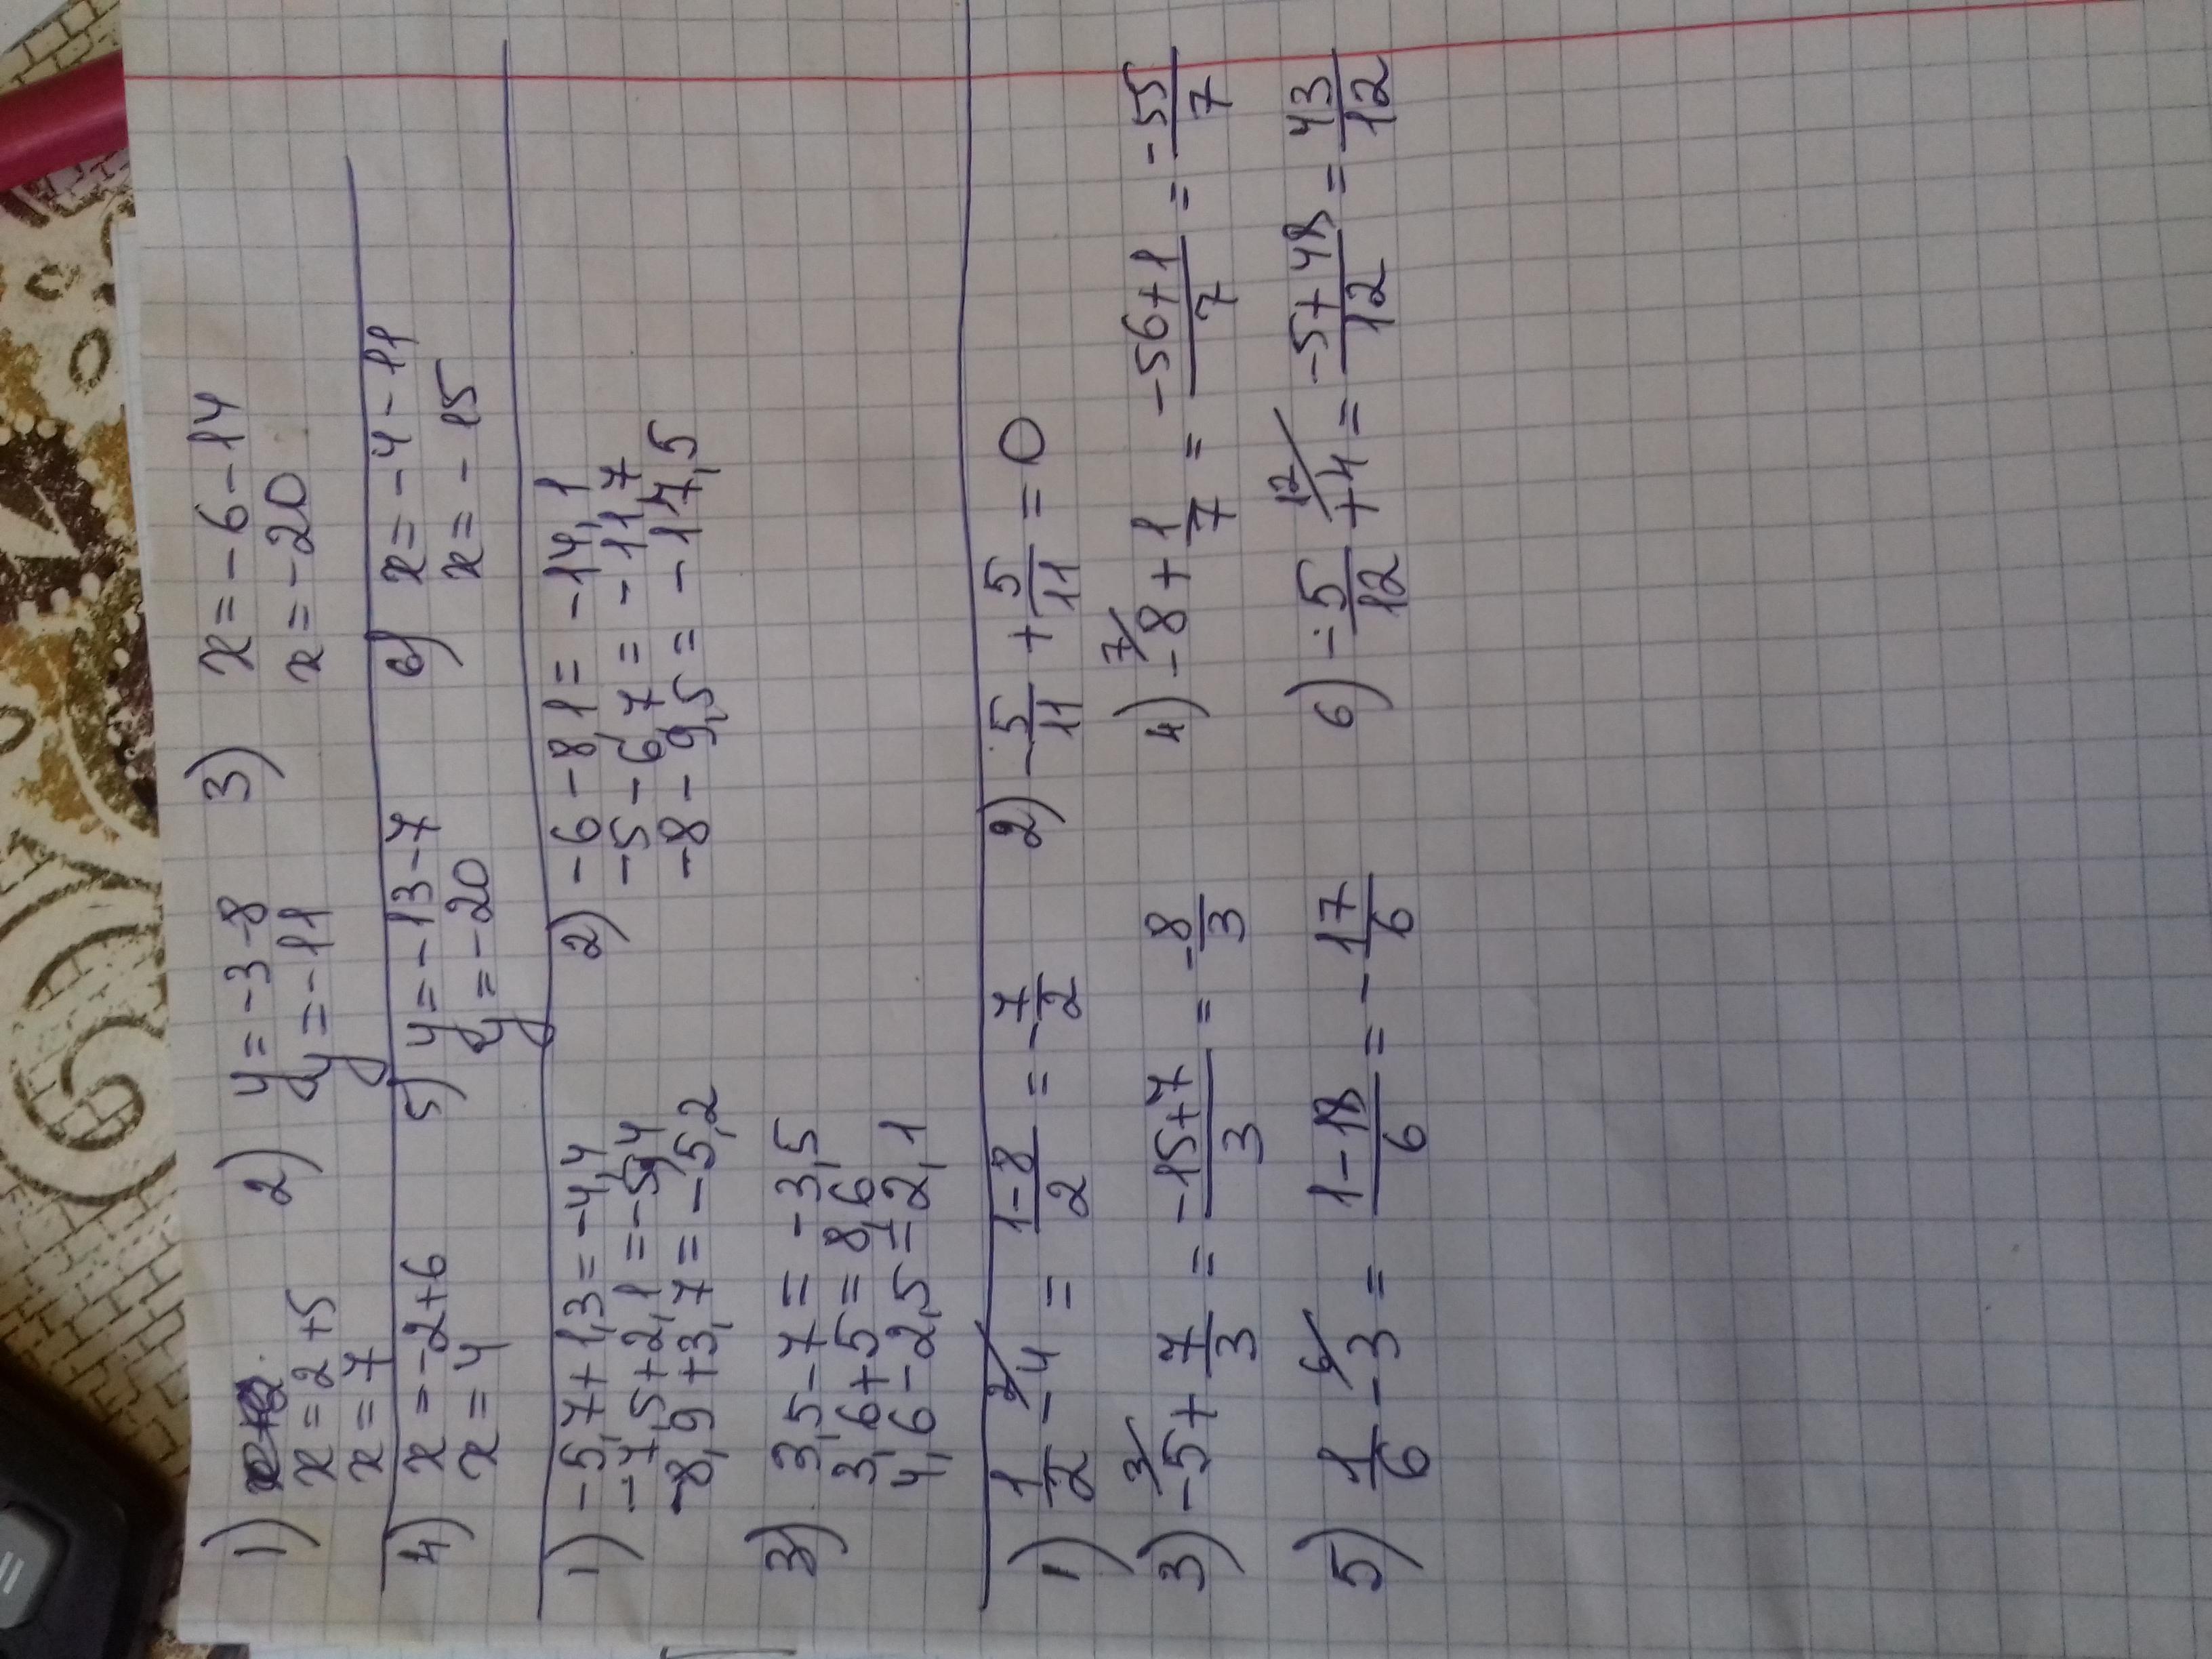 1) x = 2 + 5
x = 7
2) y = -3 - 8
y = -11
3) x = -6 - 14
x = -20
4) x = -2 + 6
x = 4
5) y = -13 - 7
y = -20
6) x = -4 - 11
x = -15
1) -5,7 + 1,3 = -4,4
-7,5 + 2,1 = -5,4
-8,9 + 3,7 = -5,2
2) -6 - 8,1 = -14,1
-5 - 6,7 = -11,7
-8 - 9,5 = -17,5
3) 3,5 - 7 = -3,5
3,6 + 5 = 8,6
4,6 - 2,5 = 2,1
1) 1/2 - 4 = (1-8)/2 = -7/2
2) -5/11 + 5/11 = 0
3) -5 + 7/3 = (-15+7)/3 = -8/3
4) -8 + 1/7 = (-56+1)/7 = -55/7
5) 1/6 - 3 = (1-18)/6 = -17/6
6) -5/12 + 4 = (-5+48)/12 = 43/12